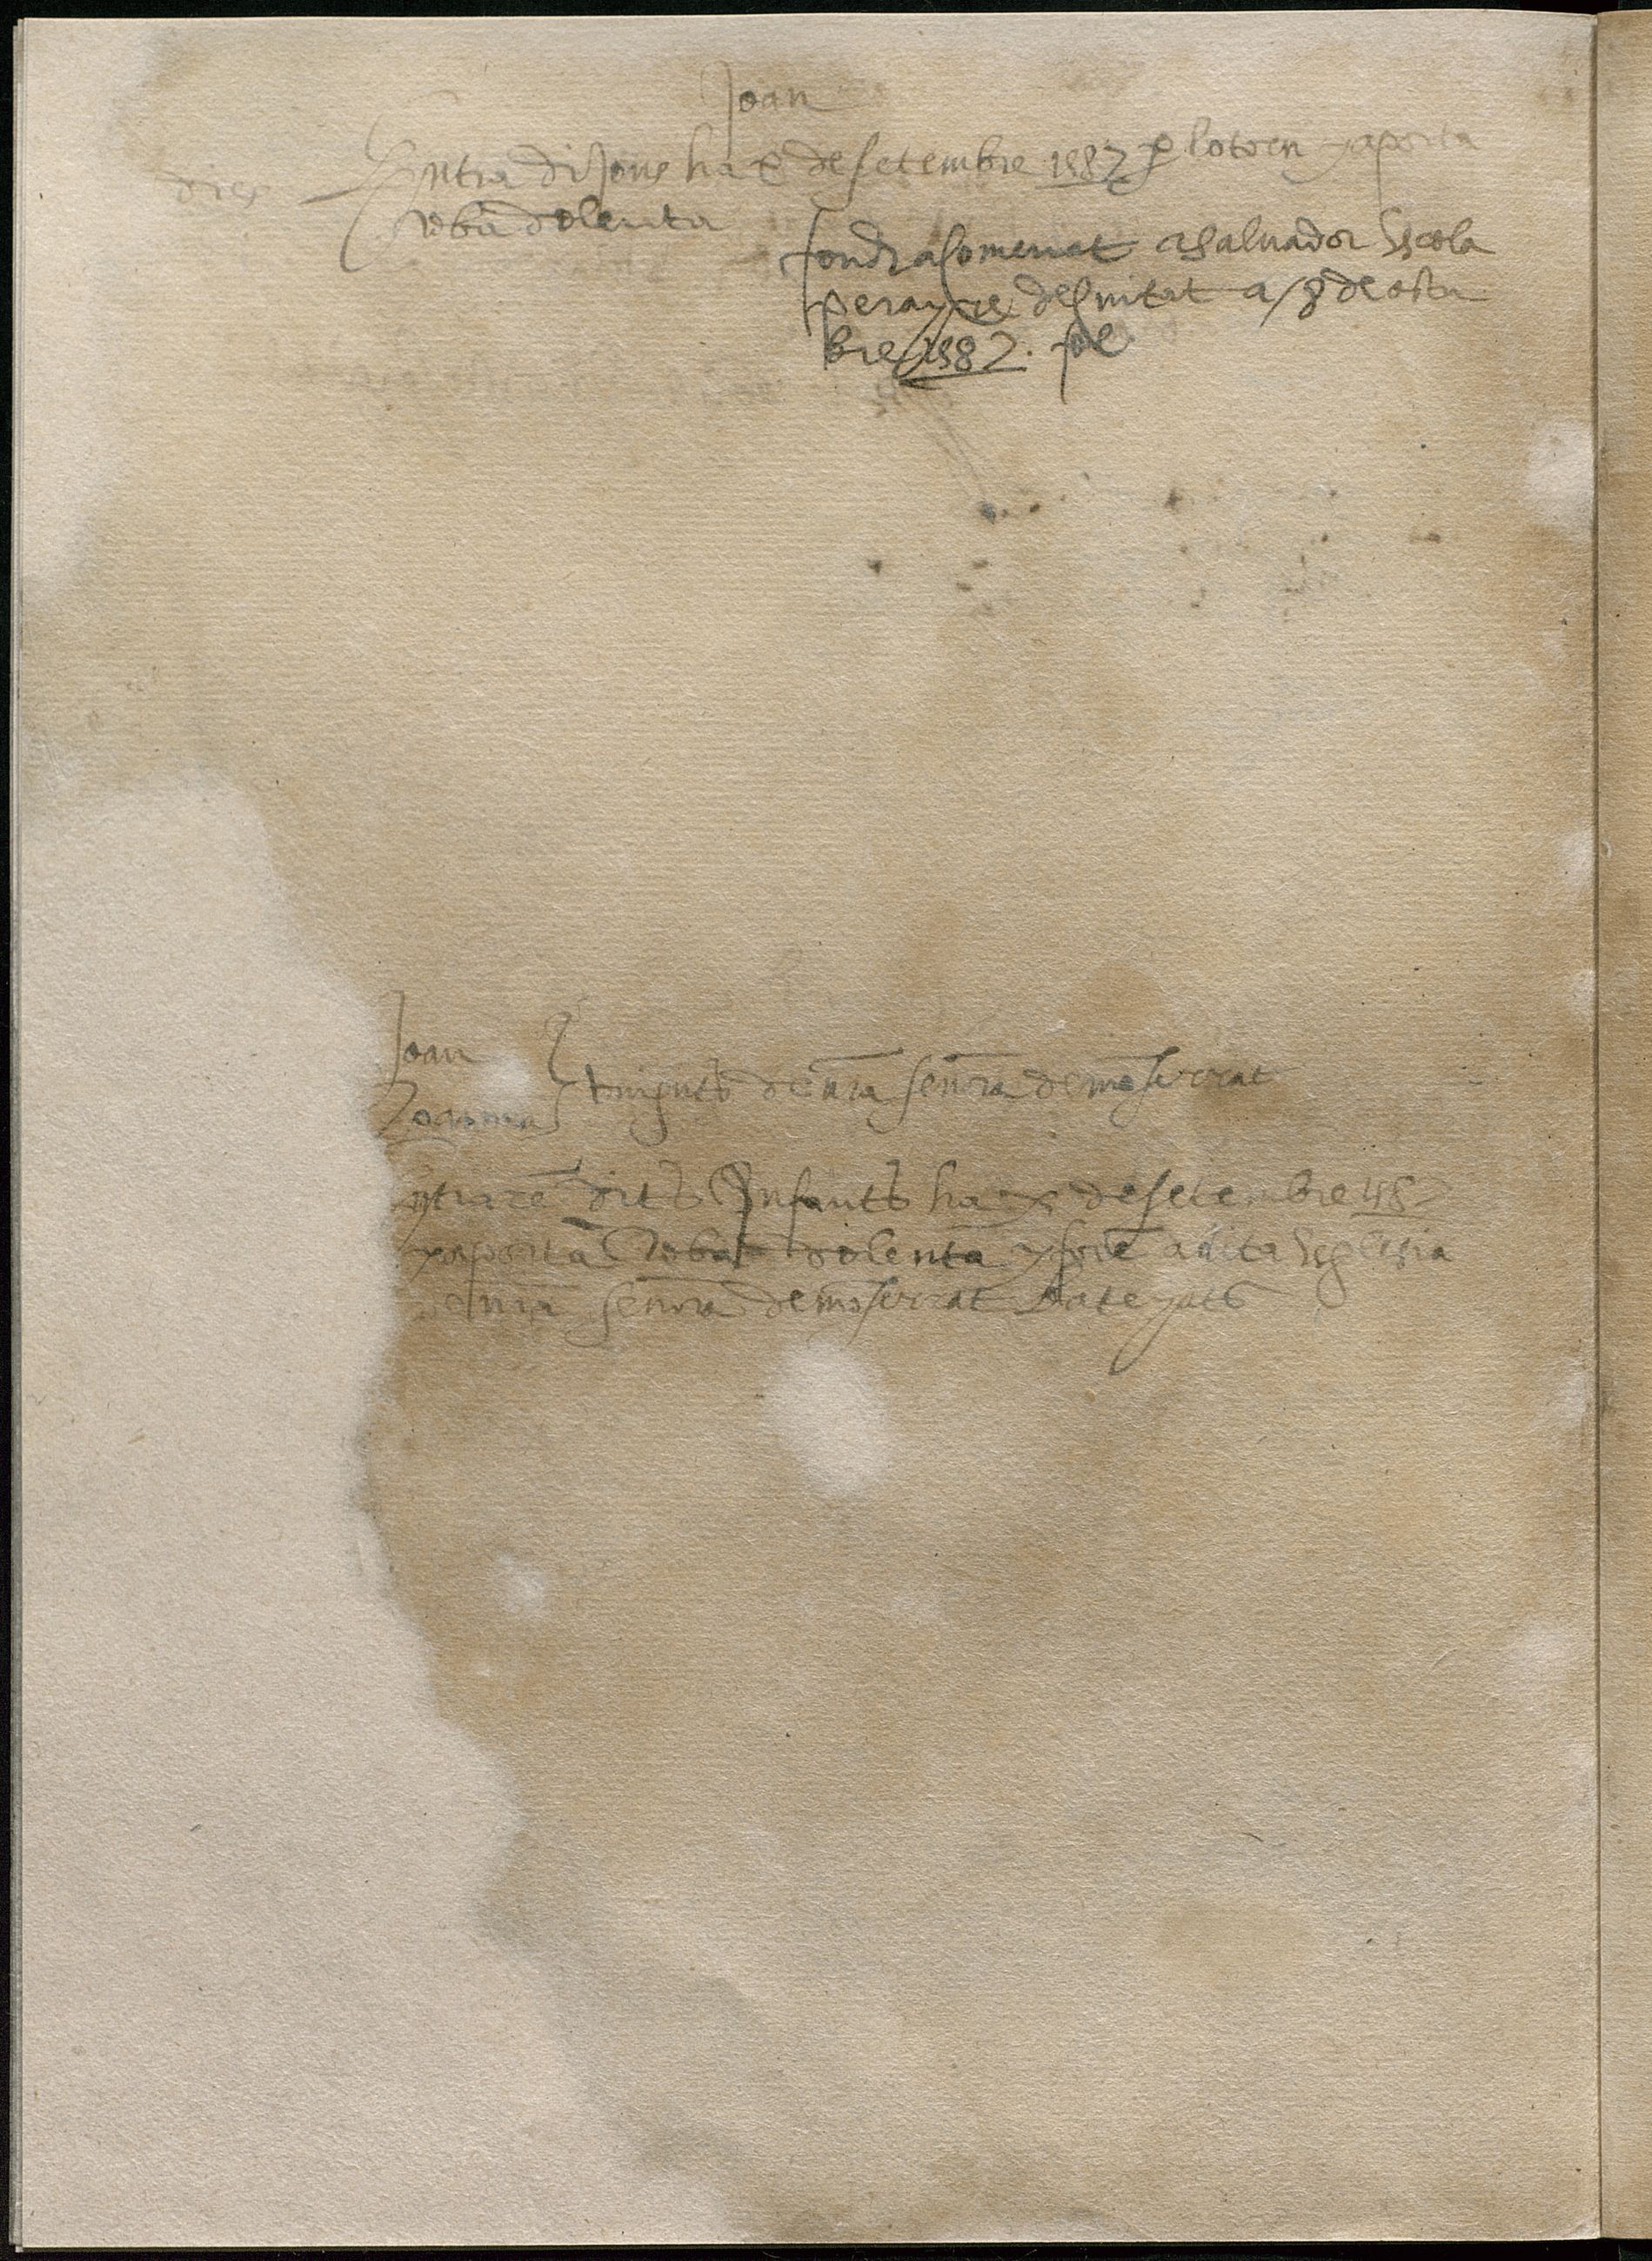 Joan
dies Entra dijous ha x de setembre 1587 p lo torn y aporta
roba dolenta
fondra comenat a salvador Escola
perayre desuitat a 8 de octu
bre 1587.
Joan
Joanna vinguts de nra senora de moserrat
ntrare dits Infants ha x de setembre 158
y aporta Roba dolenta y fore a dita Esglesia
de nra senora de moserrat Bategats